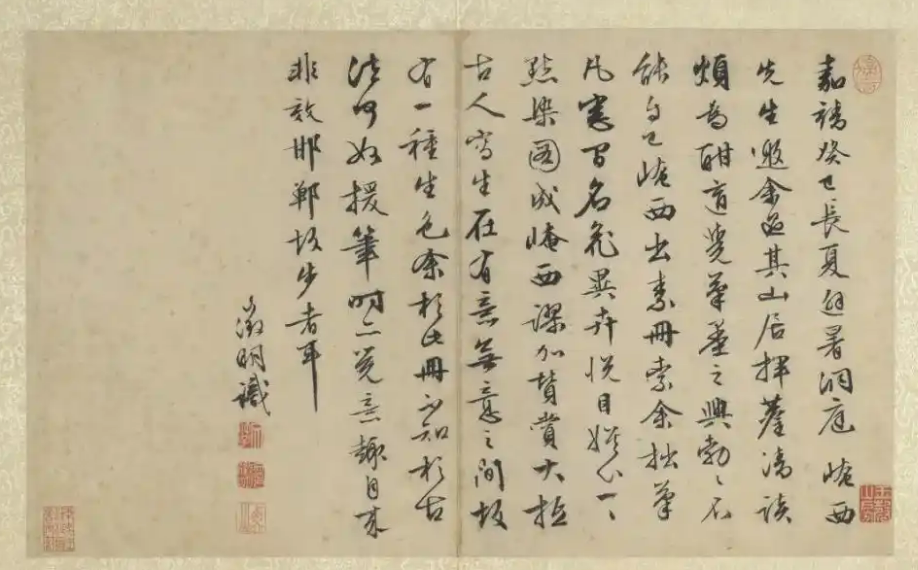 嘉靖癸巳長夏避暑洞庭崦西
先生邀余過其山居揮麈清談
頗為酣適覺筆墨之興勃〻不
能自已崦西出素冊索余拙筆
凡窓間名花異卉悅目娛心一〻
點染圖成崦西謬加贊賞大抵
古人寫生在有意無意之間故
有一種生色余於此冊不知於古
法何如援筆時亦覺意趣自来
非效邯鄲故步者耳
徵明識